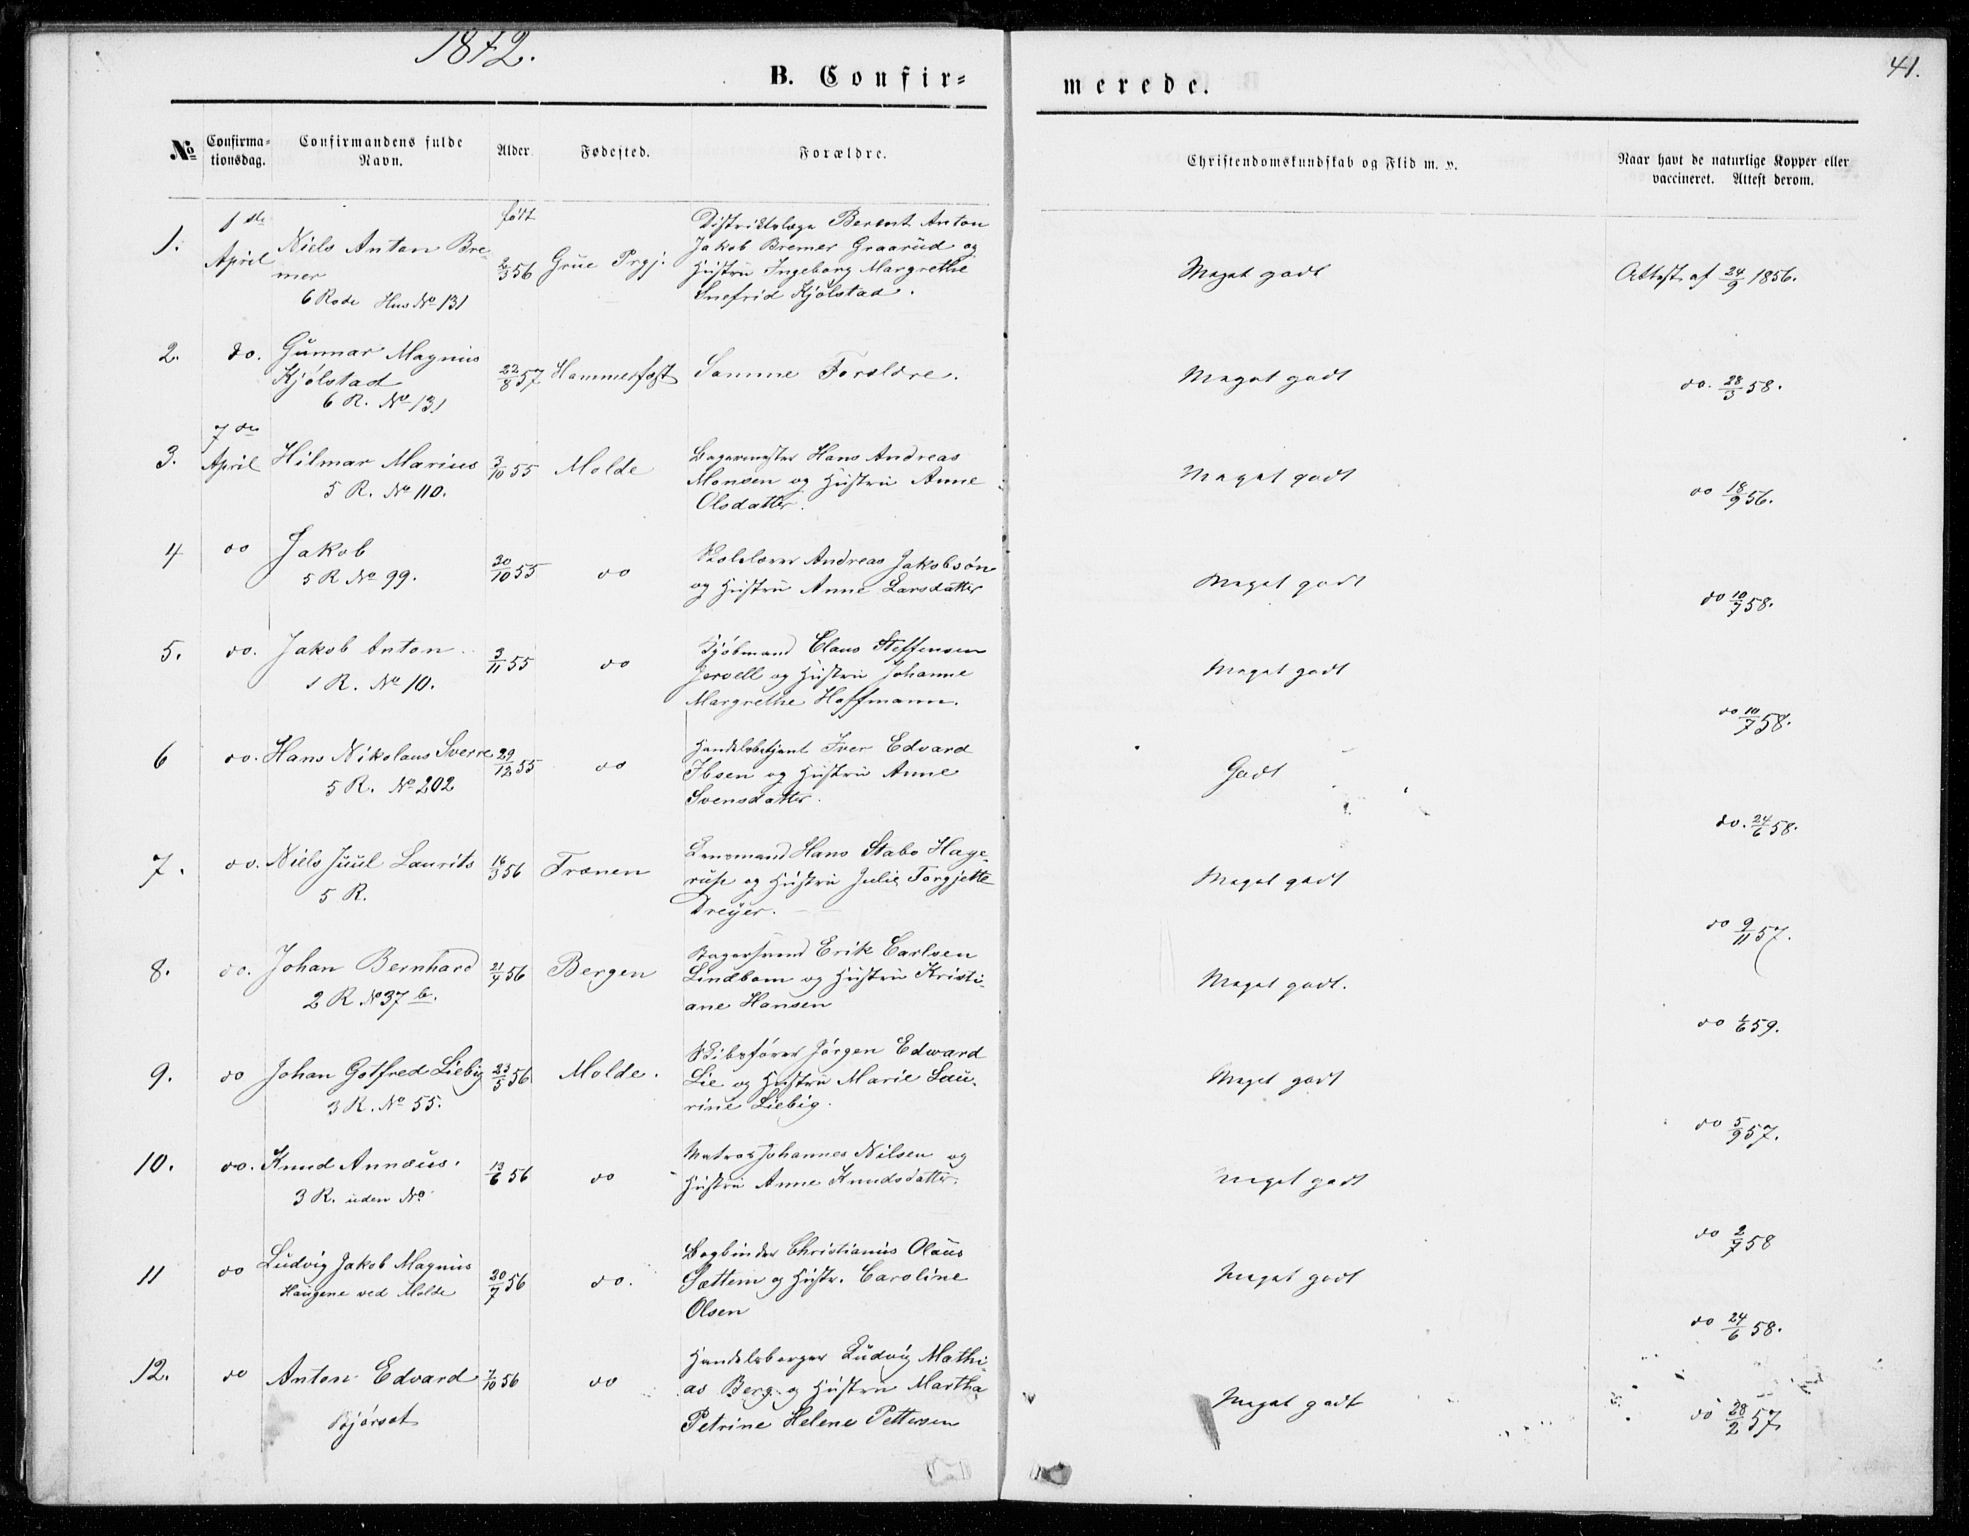 1872.
41.
B. Confir-
merede.
№
Confirma-
tionsdag.
Confirmandens fulde
Navn.
Alder
Fødested.
Forældre.
Christendomskundskab og Flid m. v.
Naar havt de naturlige Kopper eller
vaccineret. Attest derom.
1.
1ste
April
Niels Anton Bre-
mer
6 Rode Hus No 131
født
2/3 56
Grue Prgj.
Distriktslæge Berent Anton
Jakob Bremer Graarud og
Hustru Ingeborg Margrethe
Snefrid Kjølstad.
Meget godt
Attest af 24/9 1856.
2.
do.
Gunnar Magnus
Kjølstad
6 R. No 131
22/8 57
Hammerfest
Samme Forældre.
Meget godt
do. 28/3 58.
3.
7de
April
Hilmar Marius
5 R. No 110.
3/10 55
Molde
Bagermester Hans Andreas
Monsen og Hustru Anne
Olsdatter.
Meget godt
do 18/9 56.
4
do
Jakob
5 R No 99.
30/10 55
do
Skolelærer Andreas Jakobsøn
og Hustru Anne Larsdatter
Meget godt
do 10/7 58.
5.
do.
Jakob Anton
1 R. No 10.
3/11 55
do
Kjøbmand Claus Steffensen
Jervell og Hustru Johanne
Margrethe Hoffmann.
Meget godt
do 10/7 58.
6
do.
Hans Nikolaus Sverre
5 R. No 202
29/12 55
do
Handelsbetjent Iver Edvard
Ibsen og Hustru Anne
Svensdatter.
Godt
do. 24/6 58.
7.
do.
Niels Juul Laurits
5 R.
16/3 56
Frænen
Lensmand Hans Stabo Hage-
rup og Hustru Julie Torgjette
Dreyer.
Meget godt
do 9/11 57.
8.
do.
Johan Bernhard
2 R No 37 b.
21/4 56
Bergen
Bagersvend Erik Carlsen
Lindbom og Hustru Kristi-
ane Hansen
Meget godt.
do 1/6 59.
9.
do
Johan Gotfred Liebig
3 R. No 55.
23/5 56
Molde.
Skibsfører Jørgen Edward
Lie og Hustru Marie Lau-
rine Liebig.
Meget godt
do 5/9 57.
10.
do.
Knud Annæus.
3 R. uden No
13/6 56
do
Matros Johannes Nilsen og
Hustru Anne Knudsdatter.
Meget godt
do 2/7 58
11
do
Ludvig Jakob Magnus
Haugene ved Molde
20/7 56
do.
Bogbinder Christianus Olaus
Sættem og Hustr. Caroline
Olsen
Meget godt
do 24/6 58.
12.
do
Anton Edvard
Bjørset
7/10 56
do
Handelsborger Ludvig Mathi-
as Berg og Hustru Martha
Petrine Helene Pettersen
Meget godt
do 28/2 57